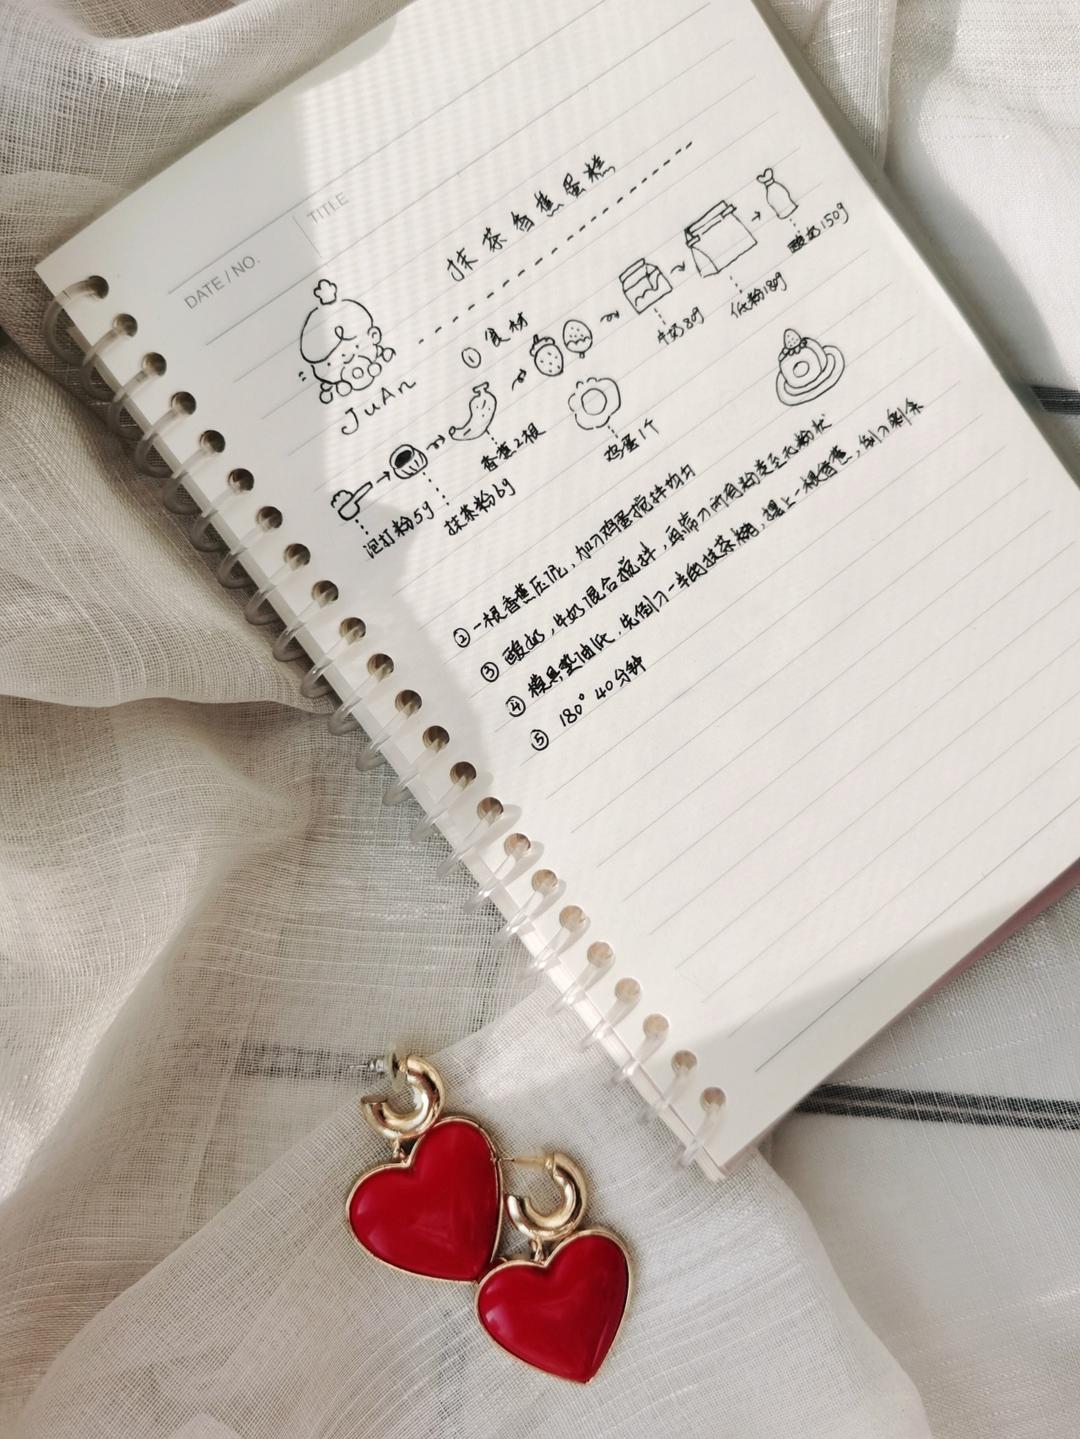 TITLE
DATE / NO.
抹茶香蕉蛋糕
JuAn
① 食材
泡打粉5g
抹茶粉6g
香蕉2根
鸡蛋1个
牛奶8g
低粉18g
酸奶150g
② 一根香蕉压泥，加入鸡蛋搅拌均匀
③ 酸奶，牛奶混合搅拌，再筛入所有粉类至无粉状
④ 模具垫油纸，先倒入一半的抹茶糊，摆上一根香蕉，倒入剩余
⑤ 180° 40分钟